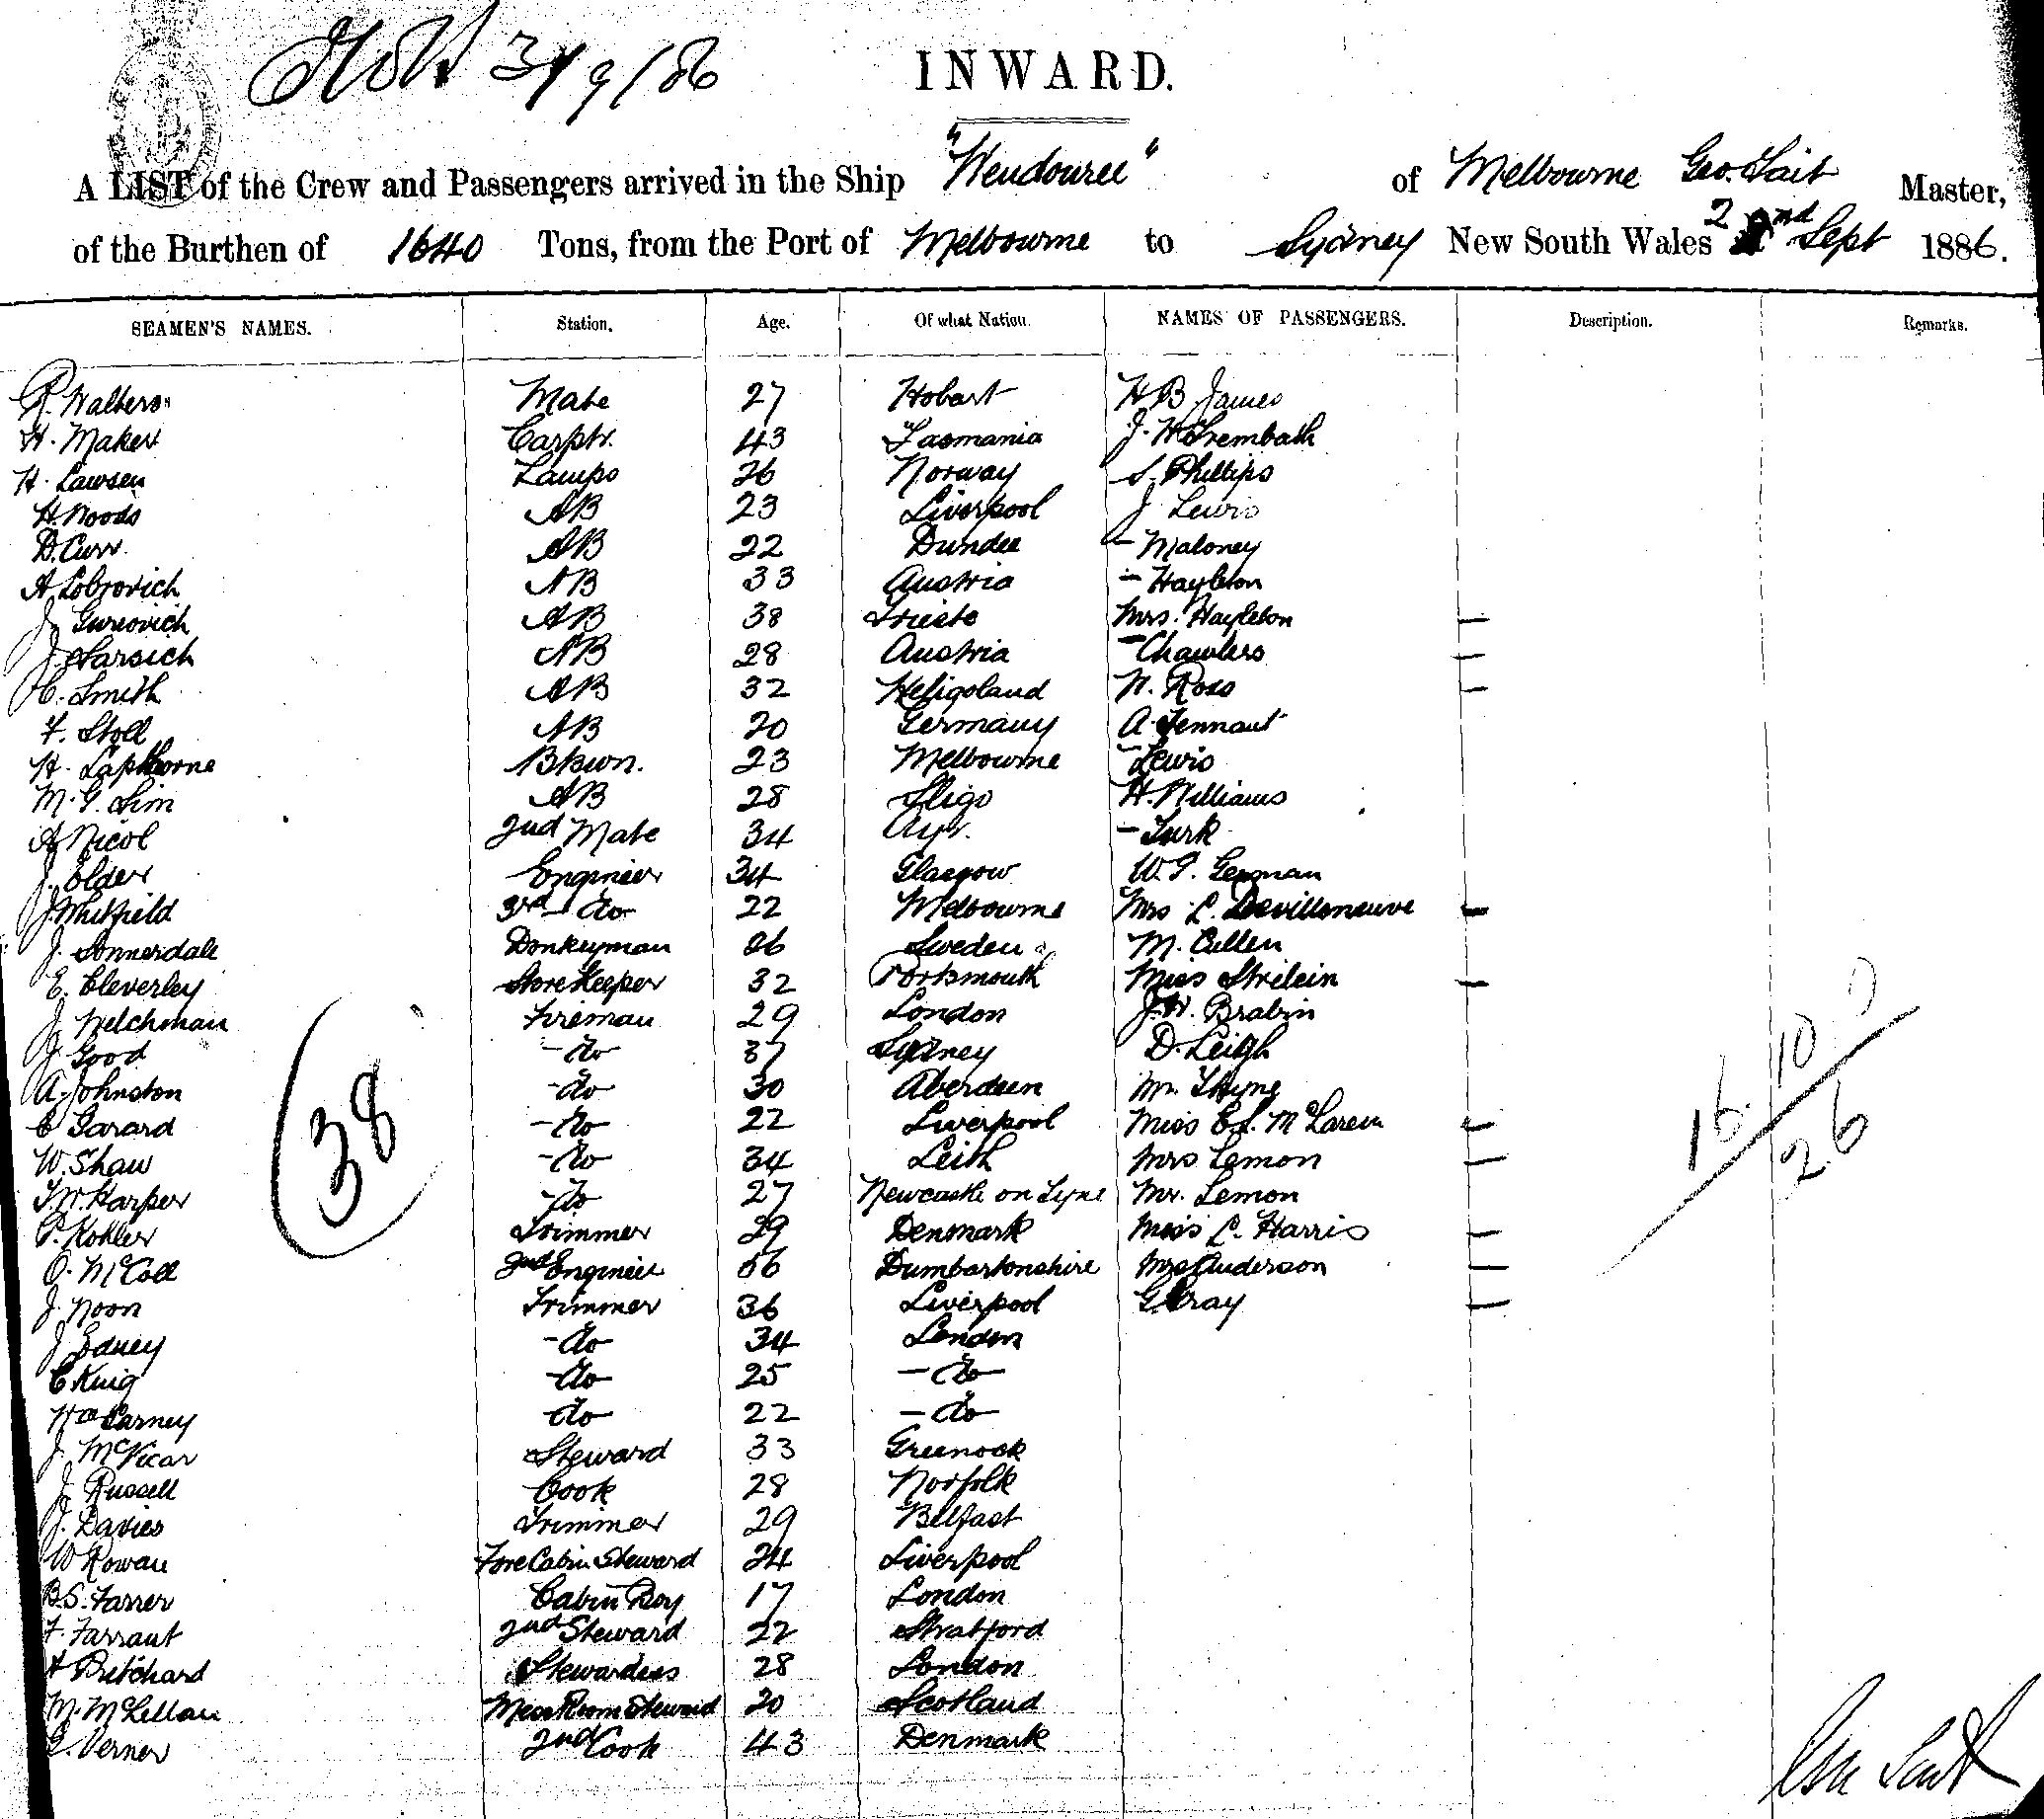 3/9/86
INWARD.
A LIST of the Crew and Passengers arrived in the Ship "Wendouree" of Melbourne Geo. Tait Master,
of the Burthen of 1640 Tons, from the Port of Melbourne to Sydney New South Wales 2nd Sept 1886.
SEAMEN'S NAMES. Station. Age. Of what Nation. NAMES OF PASSENGERS. Description. Remarks.
R. Walters Mate 27 Hobart H B James
H. Maker Carptr. 43 Tasmania J. W Trembath
H. Lawsen Lamps 26 Norway S. Phillips
H. Woods AB 23 Liverpool J Lewis
D. Curr. AB 22 Dundee - Maloney
A Lobrovich AB 33 Austria - Hayleton
J. Gurovich AB 38 Trieste Mrs. Hayleton —
J. Sarsich AB 28 Austria - Chawlers —
C. Smith AB 32 Heligoland W. Ross —
F. Stoll AB 20 Germany A Tennant
H. Lapthorne Bkwn. 23 Melbourne - Lewis
M. G. Sim AB 28 Sligo H. Williams
A Nicol 2nd Mate 34 Ayr. - Turk
J. Elder Engineer 34 Glasgow W. T. German
J. Whitfield 3rd do 22 Melbourne Mrs L. Devilleneuve —
J. Sonnerdale Donkeyman 26 Sweden M. Cullen
E. Cleverley Storekeeper 32 Portsmouth Miss Strilein —
J. Welchman Fireman 29 London J. W. Brabin
J. Good - do 37 Sydney D. Leigh
A. Johnston - do 30 Aberdeen Mr. Thyne
C Garard - do 22 Liverpool Miss C. L. McLaren —
W. Shaw - do 34 Leith Mrs Lemon —
T. W. Harper - do 27 Newcastle on Tyne Mr. Lemon
P. Kohler Trimmer 29 Denmark Miss L. Harris —
O. McColl 2nd Engineer 56 Dumbartonshire Mrs Anderson —
J. Noon Trimmer 36 Liverpool G Gray —
J Edney - do 34 London
C King - do 25 - do
Wm Carney do 22 - do
J. McVicar Steward 33 Greenock
J. Russell Cook 28 Norfolk
J. Davies Trimmer 29 Belfast
W Rowan Fore Cabin Steward 24 Liverpool
B. S. Farrer Cabin Boy 17 London
F. Farrant 2nd Steward 22 Stratford
A Pritchard Stewardess 28 London
M. McLellan Mess Room Steward 20 Scotland
E. Verner 2nd Cook 43 Denmark
38
16 10
26
Geo Tait